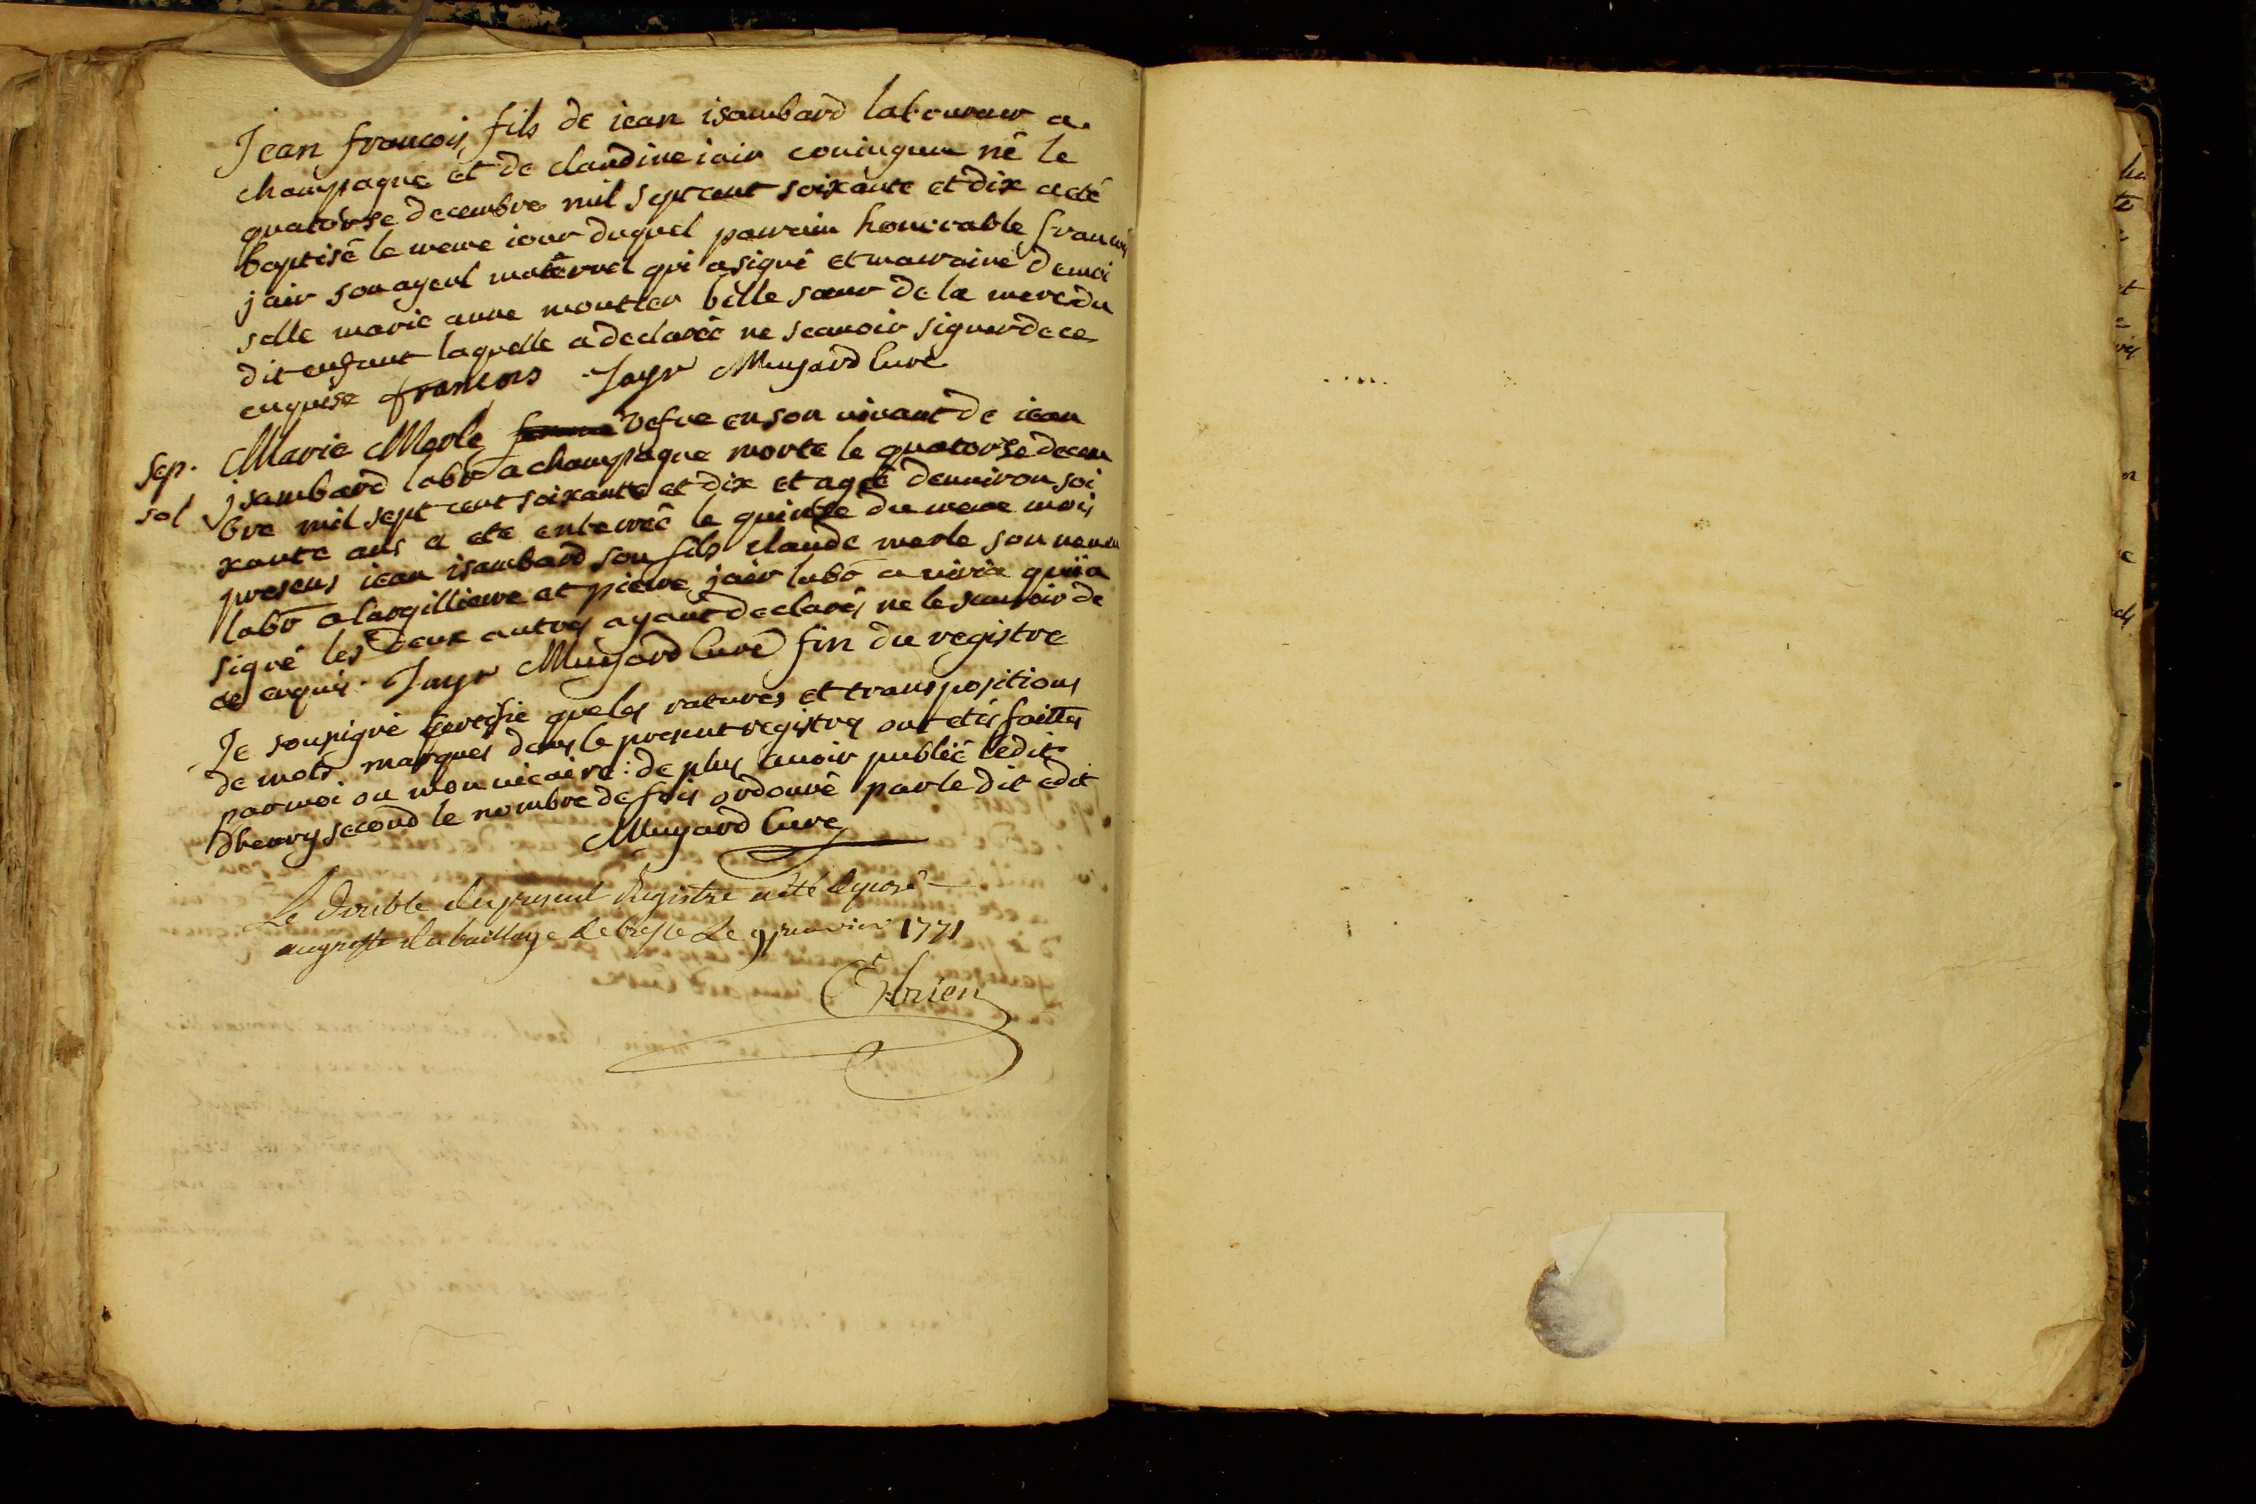 Jean francois fils de jean isambard laboureur a
champagne et de claudine jair coniugum né le
quatorse decembre mil sept cent soixante et dix a eté
baptisé le meme jour duquel parrain honorable francois
jair son ayeul maternel qui a signé et marraine demoi
selle marie anne moutier belle sœur de la mere du
dit enfant laquelle a declaréé ne scauoir signer de ce
enquise francois Jayr Muyard Curé
Sep. Marie Merle femme vefve en son vivant de jean
sol jsambard labr a champagne morte le quatorse decem
bre mil sept cent soixante et dix et agéé denuiron soi
xante ans a eté enterréé le quinse du meme mois
presens jean isambard son fils claude merle son neueu
labr a largilliere et pierre jair labr a viria qui a
signé les deux autres ayant declarés ne le scauoir de
ce enquis. Jayr Muyard Curé fin du registre
Je sousigné certifie que les ratures et transpositions
de mots marqués dans le present registres ont etés faittes
par moi ou mon vicaire : de plus auoir publié ledit
dhenry second le nombre de fois ordonné par le dit edit
Muyard Curé
Le double du present Registre a été deposé
au greffe du bailliage de bresse Le 9 janvier 1771